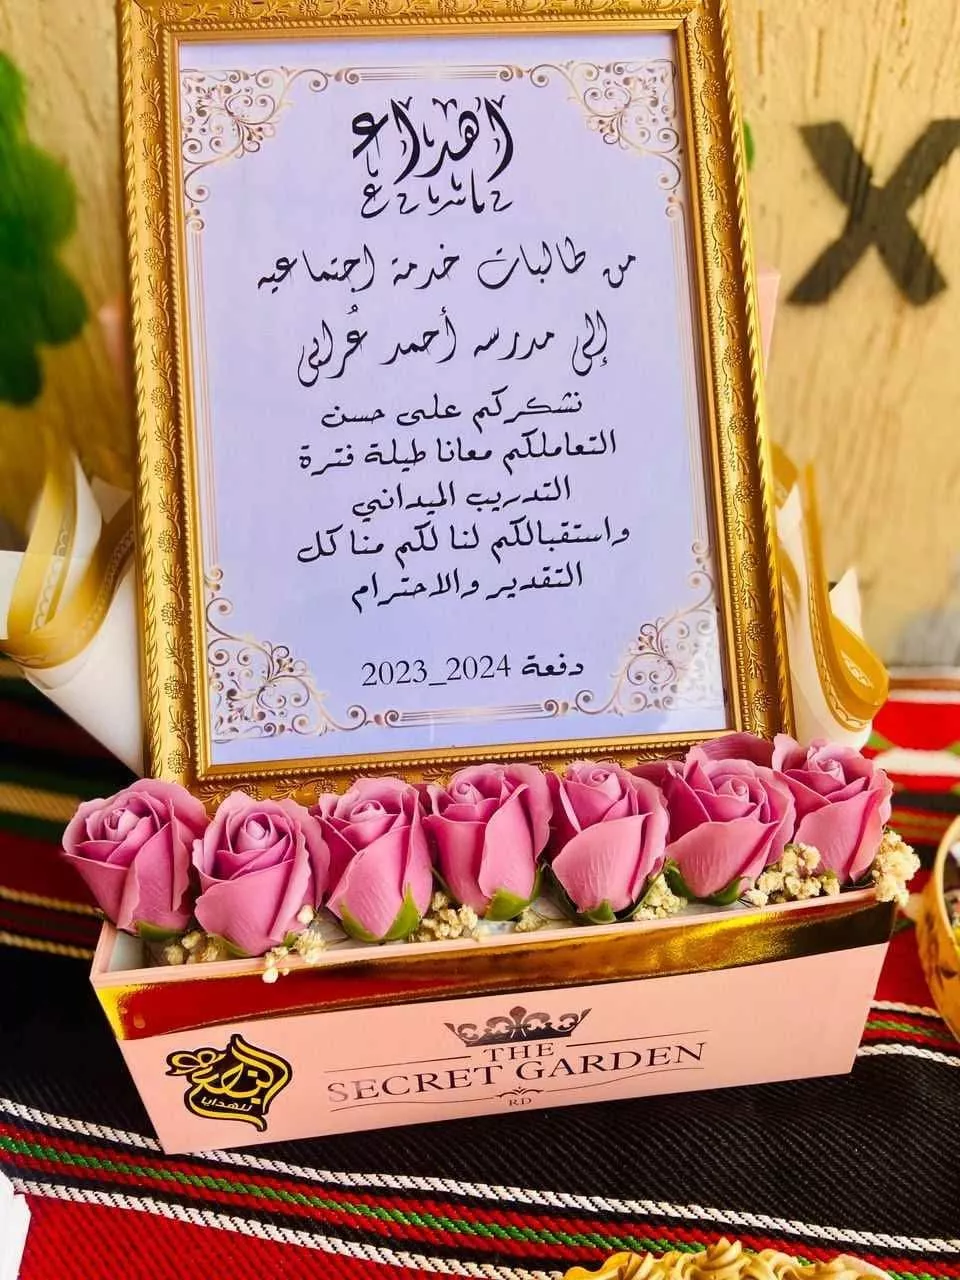 اهداء
من طالبات خدمة اجتماعيه
إلى مدرسه أحمد عُرابى
نشكركم على حسن
التعاملكم معانا طيلة فترة
التدريب الميداني
واستقبالكم لنا لكم منا كل
التقدير والاحترام
دفعة 2024_2023
THE
SECRET GARDEN
RD
للهدايا
X